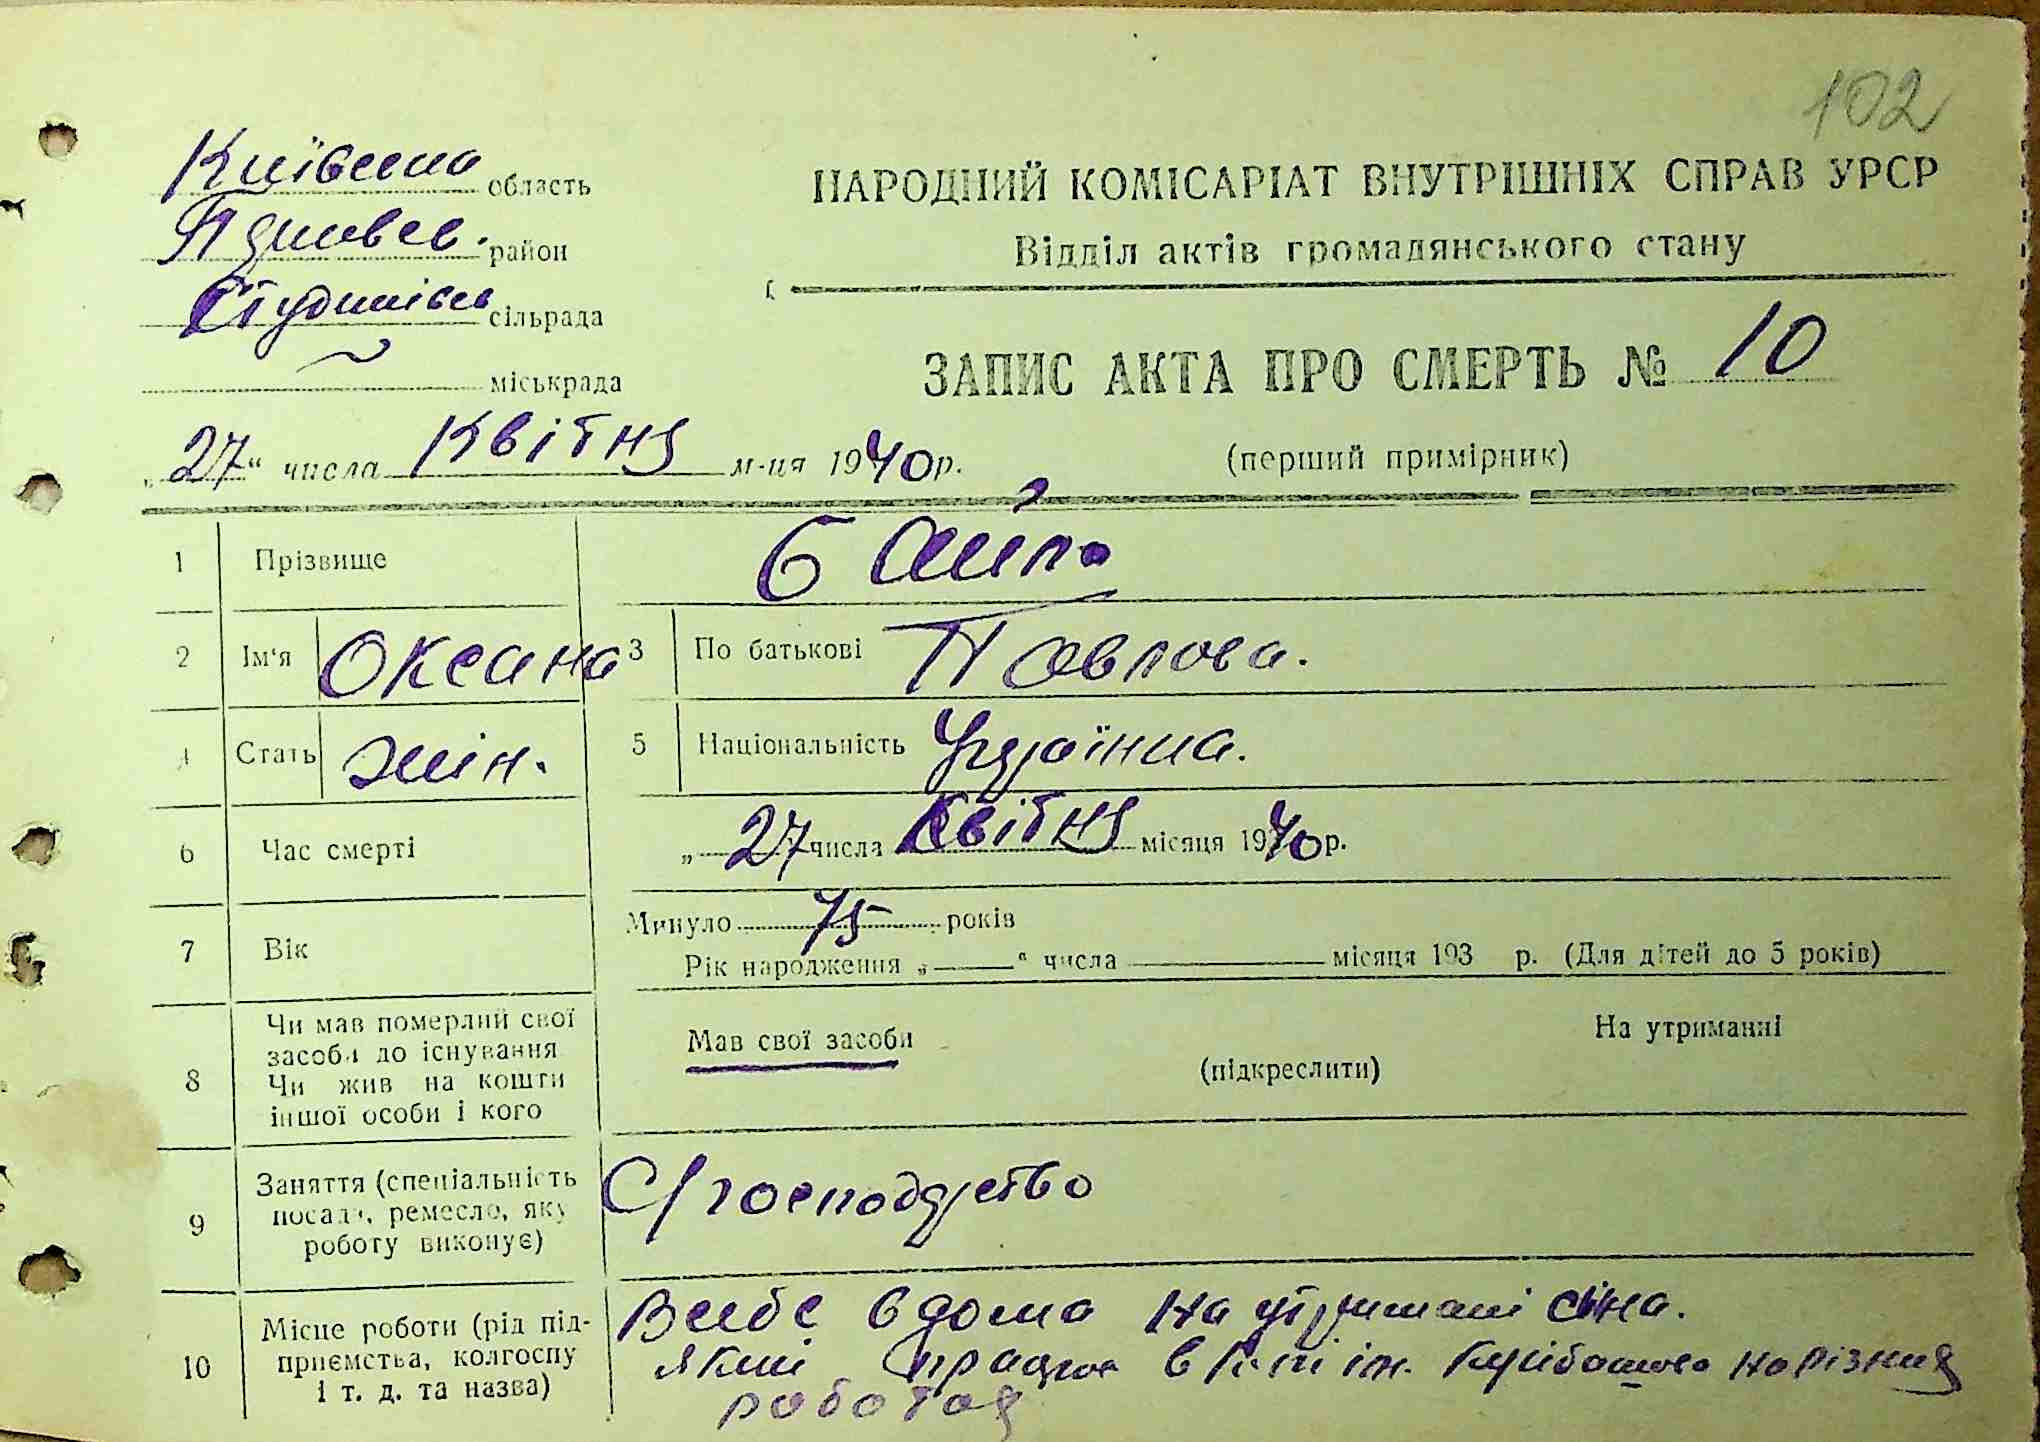 102
Київська область
НАРОДНИЙ КОМІСАРІАТ ВНУТРІШНІХ СПРАВ УРСР
район
Відділ актів громадянського стану
сільрада
ЗАПИС АКТА ПРО СМЕРТЬ № 10
міськрада
„27“ числа Квітня м-ця 1940 р.
(перший примірник)
1 Прізвище
2 Ім‘я Оксана 3 По батькові Павлова.
4 Стать жін. 5 Національність Україінка.
6 Час смерті „27 числа Квітня місяця 1940 р.
7 Вік Минуло 75 років
Рік народження „ “ числа місяця 193 р. (Для дітей до 5 років)
8 Чи мав померлий свої
засоби до існування
Чи жив на кошти
іншої особи і кого
Мав свої засоби
На утриманні
(підкреслити)
9 Заняття (спеціальність
посада, ремесло, яку
роботу виконує)
С/господарство
10 Місце роботи (рід під-
приємства, колгоспу
і т. д. та назва)
в дома на утримані сина.
який працює в ім. на різних
роботах